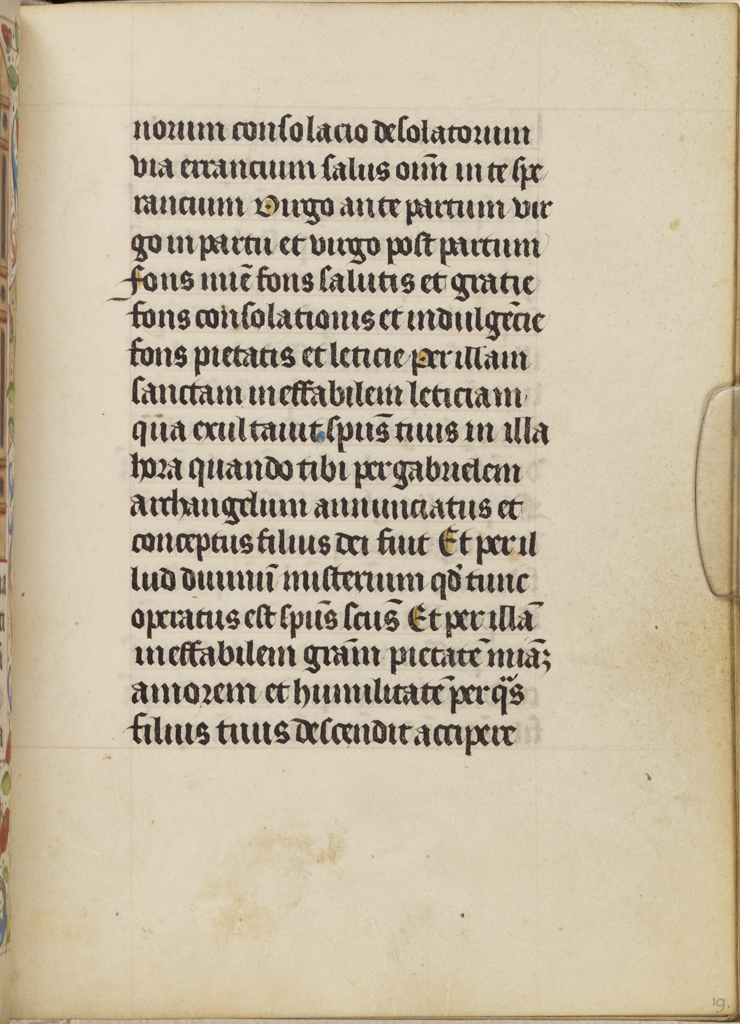 norum consolacio desolatorum
via errancium salus om̄ in te spe
rancium Virgo ante partum vir
go in partu et virgo post partum
fons mīe fons salutis et gratie
fons consolationis et indulgēcie
fons pietatis et leticie Per illam
sanctam ineffabilem leticiam
qua exultauit spūs tuus in illa
hora quando tibi per gabrielem
archangelum annunciatus et
conceptus filius dei fuit Et per il
lud diuinū misterium qd̓ tunc
operatus est spūs scūs Et per illā
ineffabilem grām pietatē mīaꝫ
amorem et humilitatē per q̄s
filius tuus descendit accipere
19.